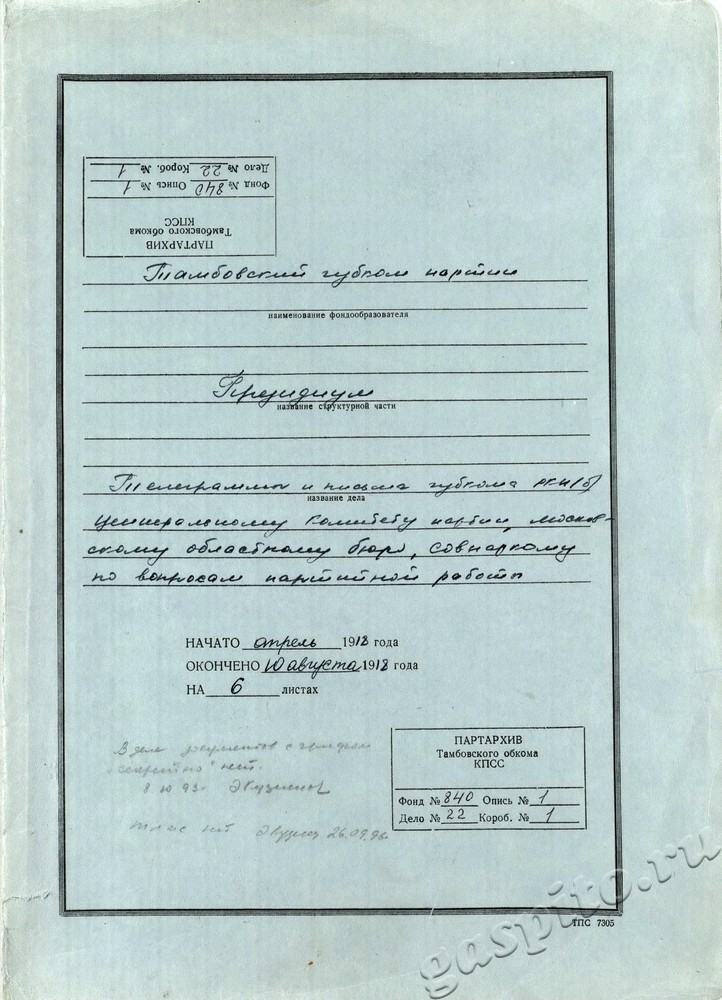 ПАРТАРХИВ
Тамбовского обкома
КПСС
Фонд № 840 Опись № 1
Дело № 22 Короб. № 1
Тамбовский губком партии
наименование фондообразователя
Президиум
название структурной части
Телеграммы и письма губкома РКП(б)
название дела
Центральному Комитету партии, Москов-
скому областному бюро, Совнаркому
по вопросам партийной работы
НАЧАТО апрель 1918 года
ОКОНЧЕНО 10 августа 1918 года
НА 6 листах
В деле документов с грифом
"секретно" нет.
ПАРТАРХИВ
Тамбовского обкома
КПСС
Фонд № 840 Опись № 1
Дело № 22 Короб. № 1
нет 26.09.96.
ТПС 7305
gaspito.ru